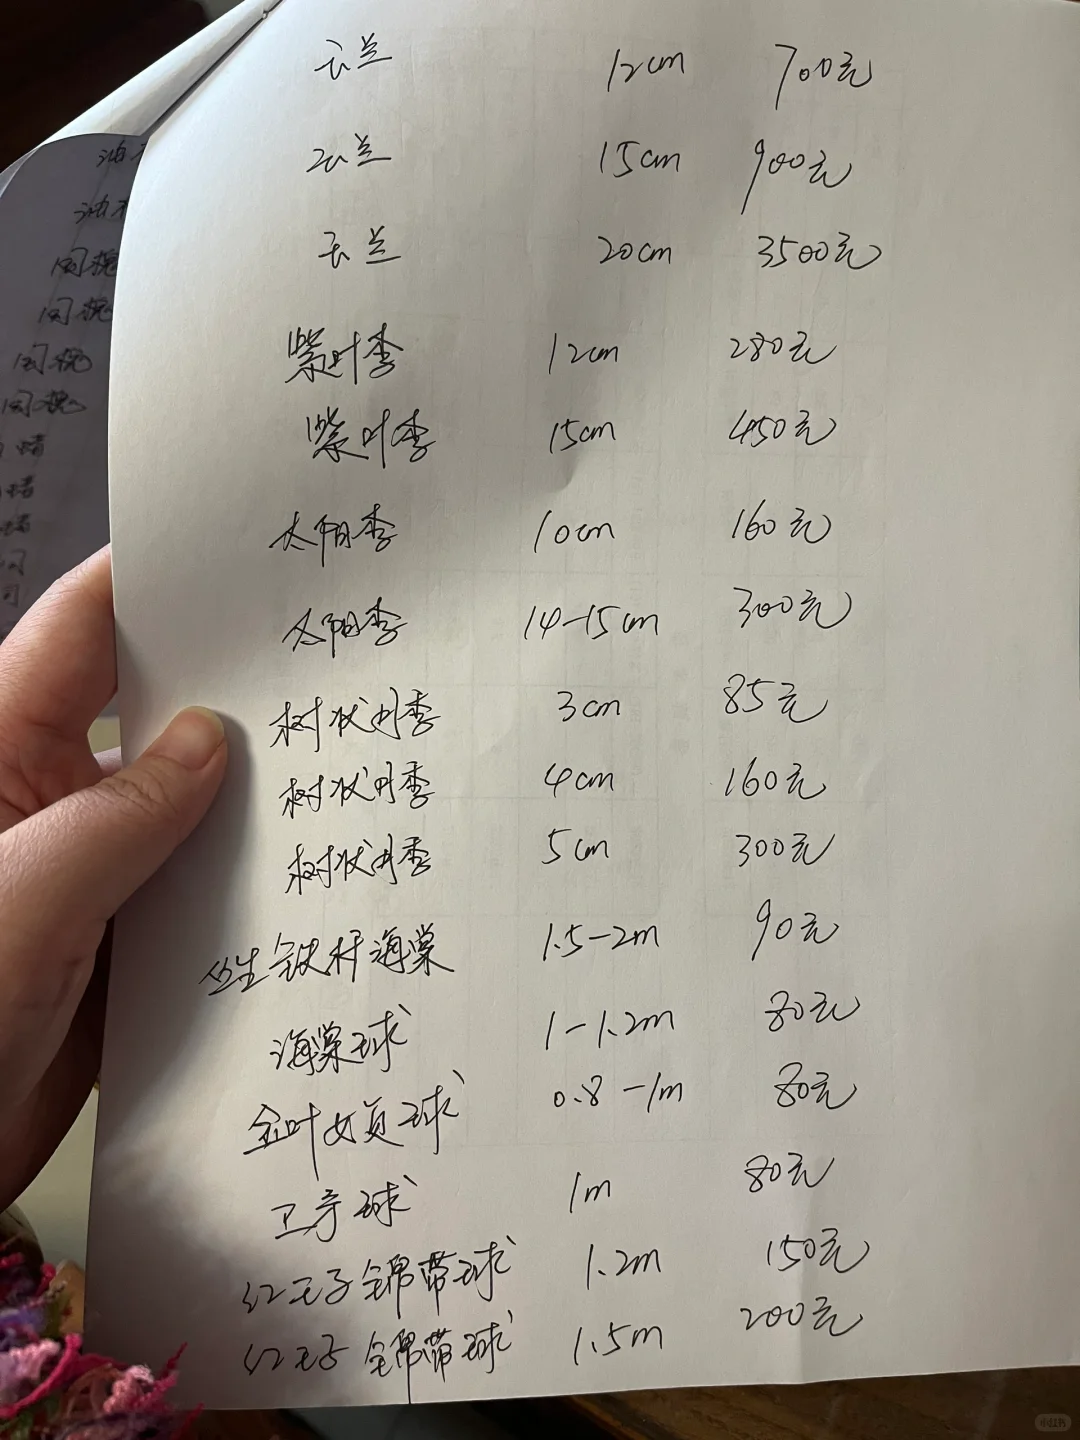 玉兰 12cm 700元
玉兰 15cm 900元
玉兰 20cm 3500元
紫叶李 12cm 280元
紫叶李 15cm 450元
太阳李 10cm 160元
太阳李 14-15cm 300元
树状月季 3cm 85元
树状月季 4cm 160元
树状月季 5cm 300元
丛生铁杆海棠 1.5-2m 90元
海棠球 1-1.2m 80元
金叶女贞球 0.8-1m 80元
卫矛球 1m 80元
红王子锦带球 1.2m 150元
红王子锦带球 1.5m 200元
国槐
国槐
国槐
国槐
小红书